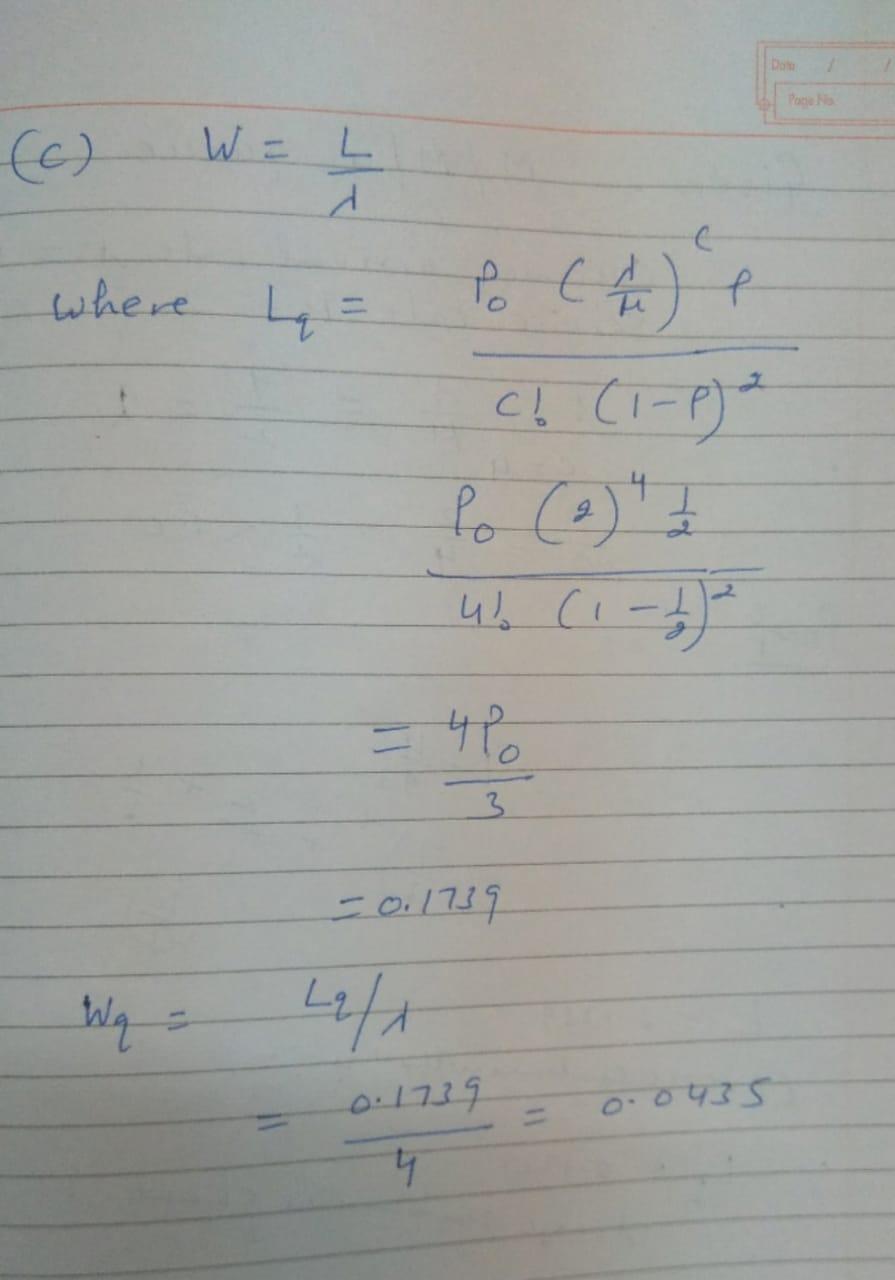 Date / /
Page No.
(c) W = L/λ
where Lq = P₀ (λ/μ)^c ρ / c! (1-ρ)²
P₀ (2)⁴ 1/2 / 4! (1 - 1/2)²
= 4P₀/3
= 0.1739
Wq = Lq/λ
= 0.1739/4 = 0.0435